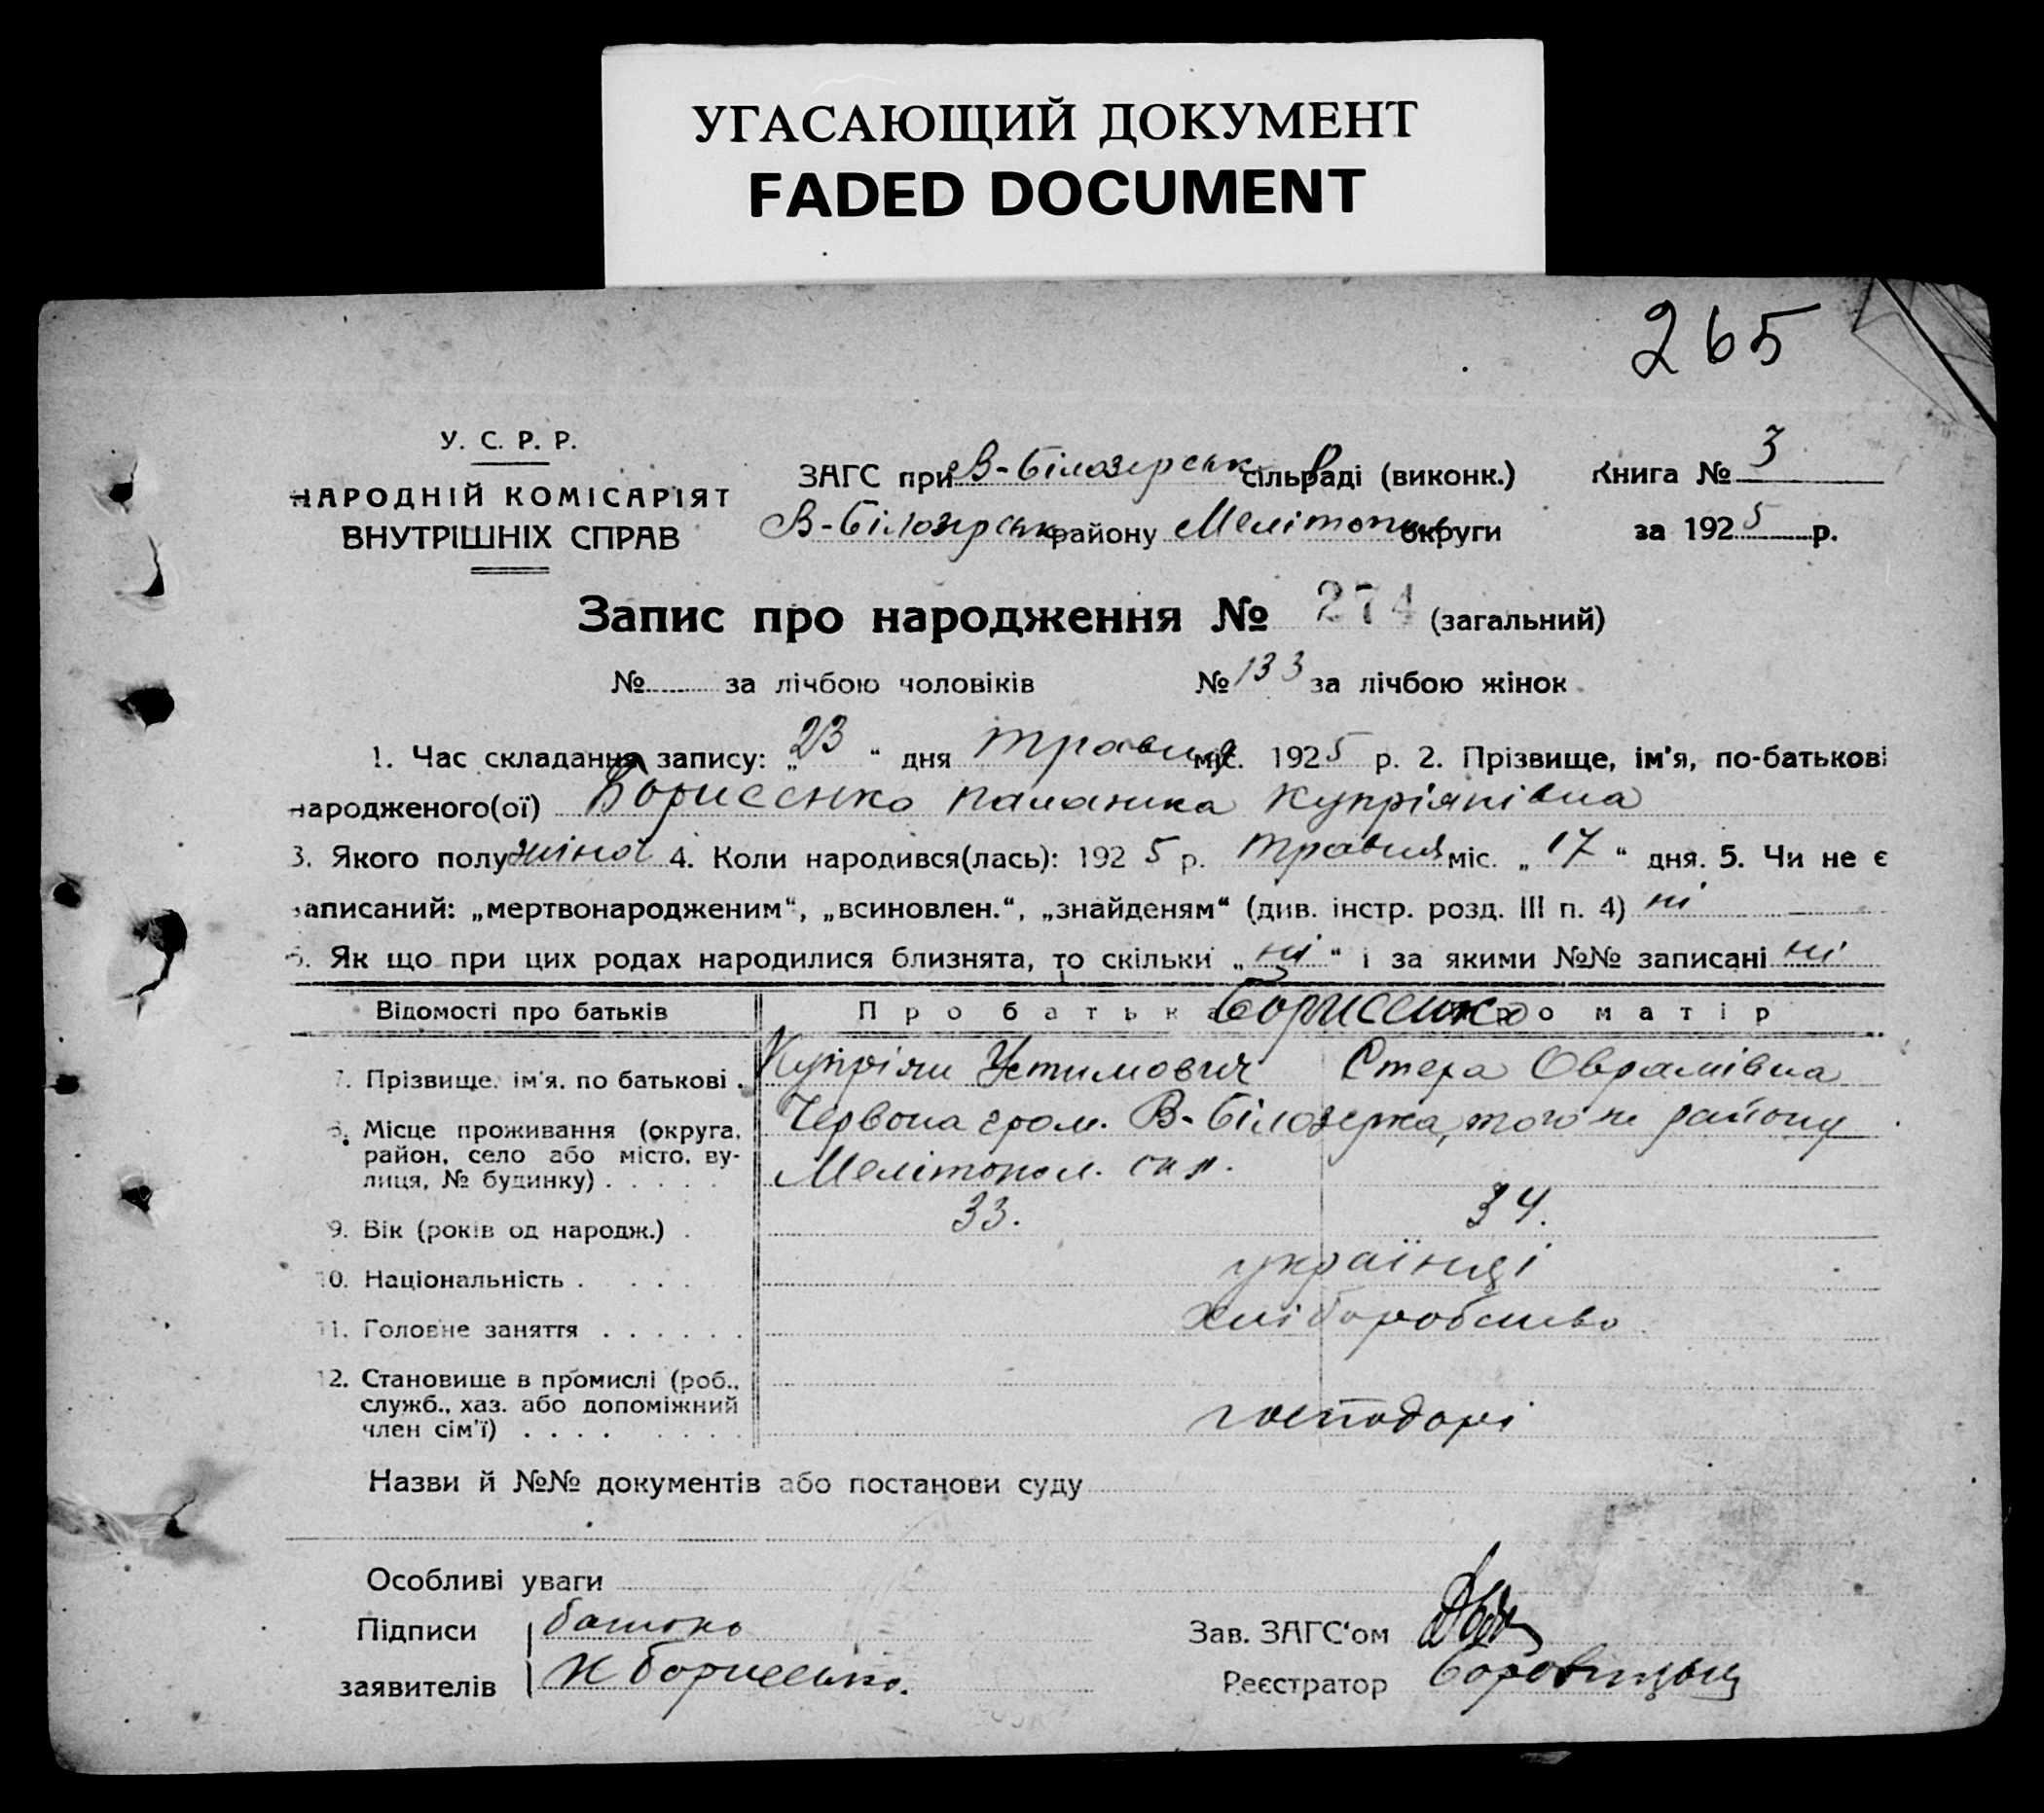 УГАСАЮЩИЙ ДОКУМЕНТ
FADED DOCUMENT
265
У. С. Р. Р.
НАРОДНІЙ КОМІСАРІЯТ
ВНУТРІШНІХ СПРАВ
ЗАГС при В-Білозерськ сільраді (виконк.)
В-Білозерськ району Мелітопил округи
Книга № 3
за 1925 р.
Запис про народження № 274 (загальний)
№ за лічбою чоловіків № 133 за лічбою жінок
1. Час складання запису: „23“ дня травня міс. 1925 р. 2. Прізвище, ім'я, по-батькові
народженого(ої) Борисенко Палажка Купріянівна
3. Якого полу жіноч 4. Коли народився(лась): 1925 р. травня міс. „17“ дня. 5. Чи не є
записаний: „мертвонародженим“, „всиновлен.“, „знайденям“ (див. інстр. розд. III п. 4) ні
6. Як що при цих родах народилися близнята, то скільки „ні“ і за якими №№ записані ні
Відомості про батьків Про батька Про матір
Борисенко
7. Прізвище, ім'я, по батькові . Купріян Устимович Стеха Оврамівна
8. Місце проживання (округа, район, село або місто, вулиця, № будинку) . . . . . Червона гром. В-Білозерка, того ж району
Мелітопол. окр.
9. Вік (років од народж.) . 33. 34.
10. Національність . . . . українці
11. Головне заняття . . . . . . хліборобство
12. Становище в промислі (роб.,
служб., хаз. або допоміжний
член сім'ї) . . . . . . . . господарі
Назви й №№ документів або постанови суду
Особливі уваги
Підписи батько
заявителів К Борисенко.
Зав. ЗАГС'ом
Реєстратор